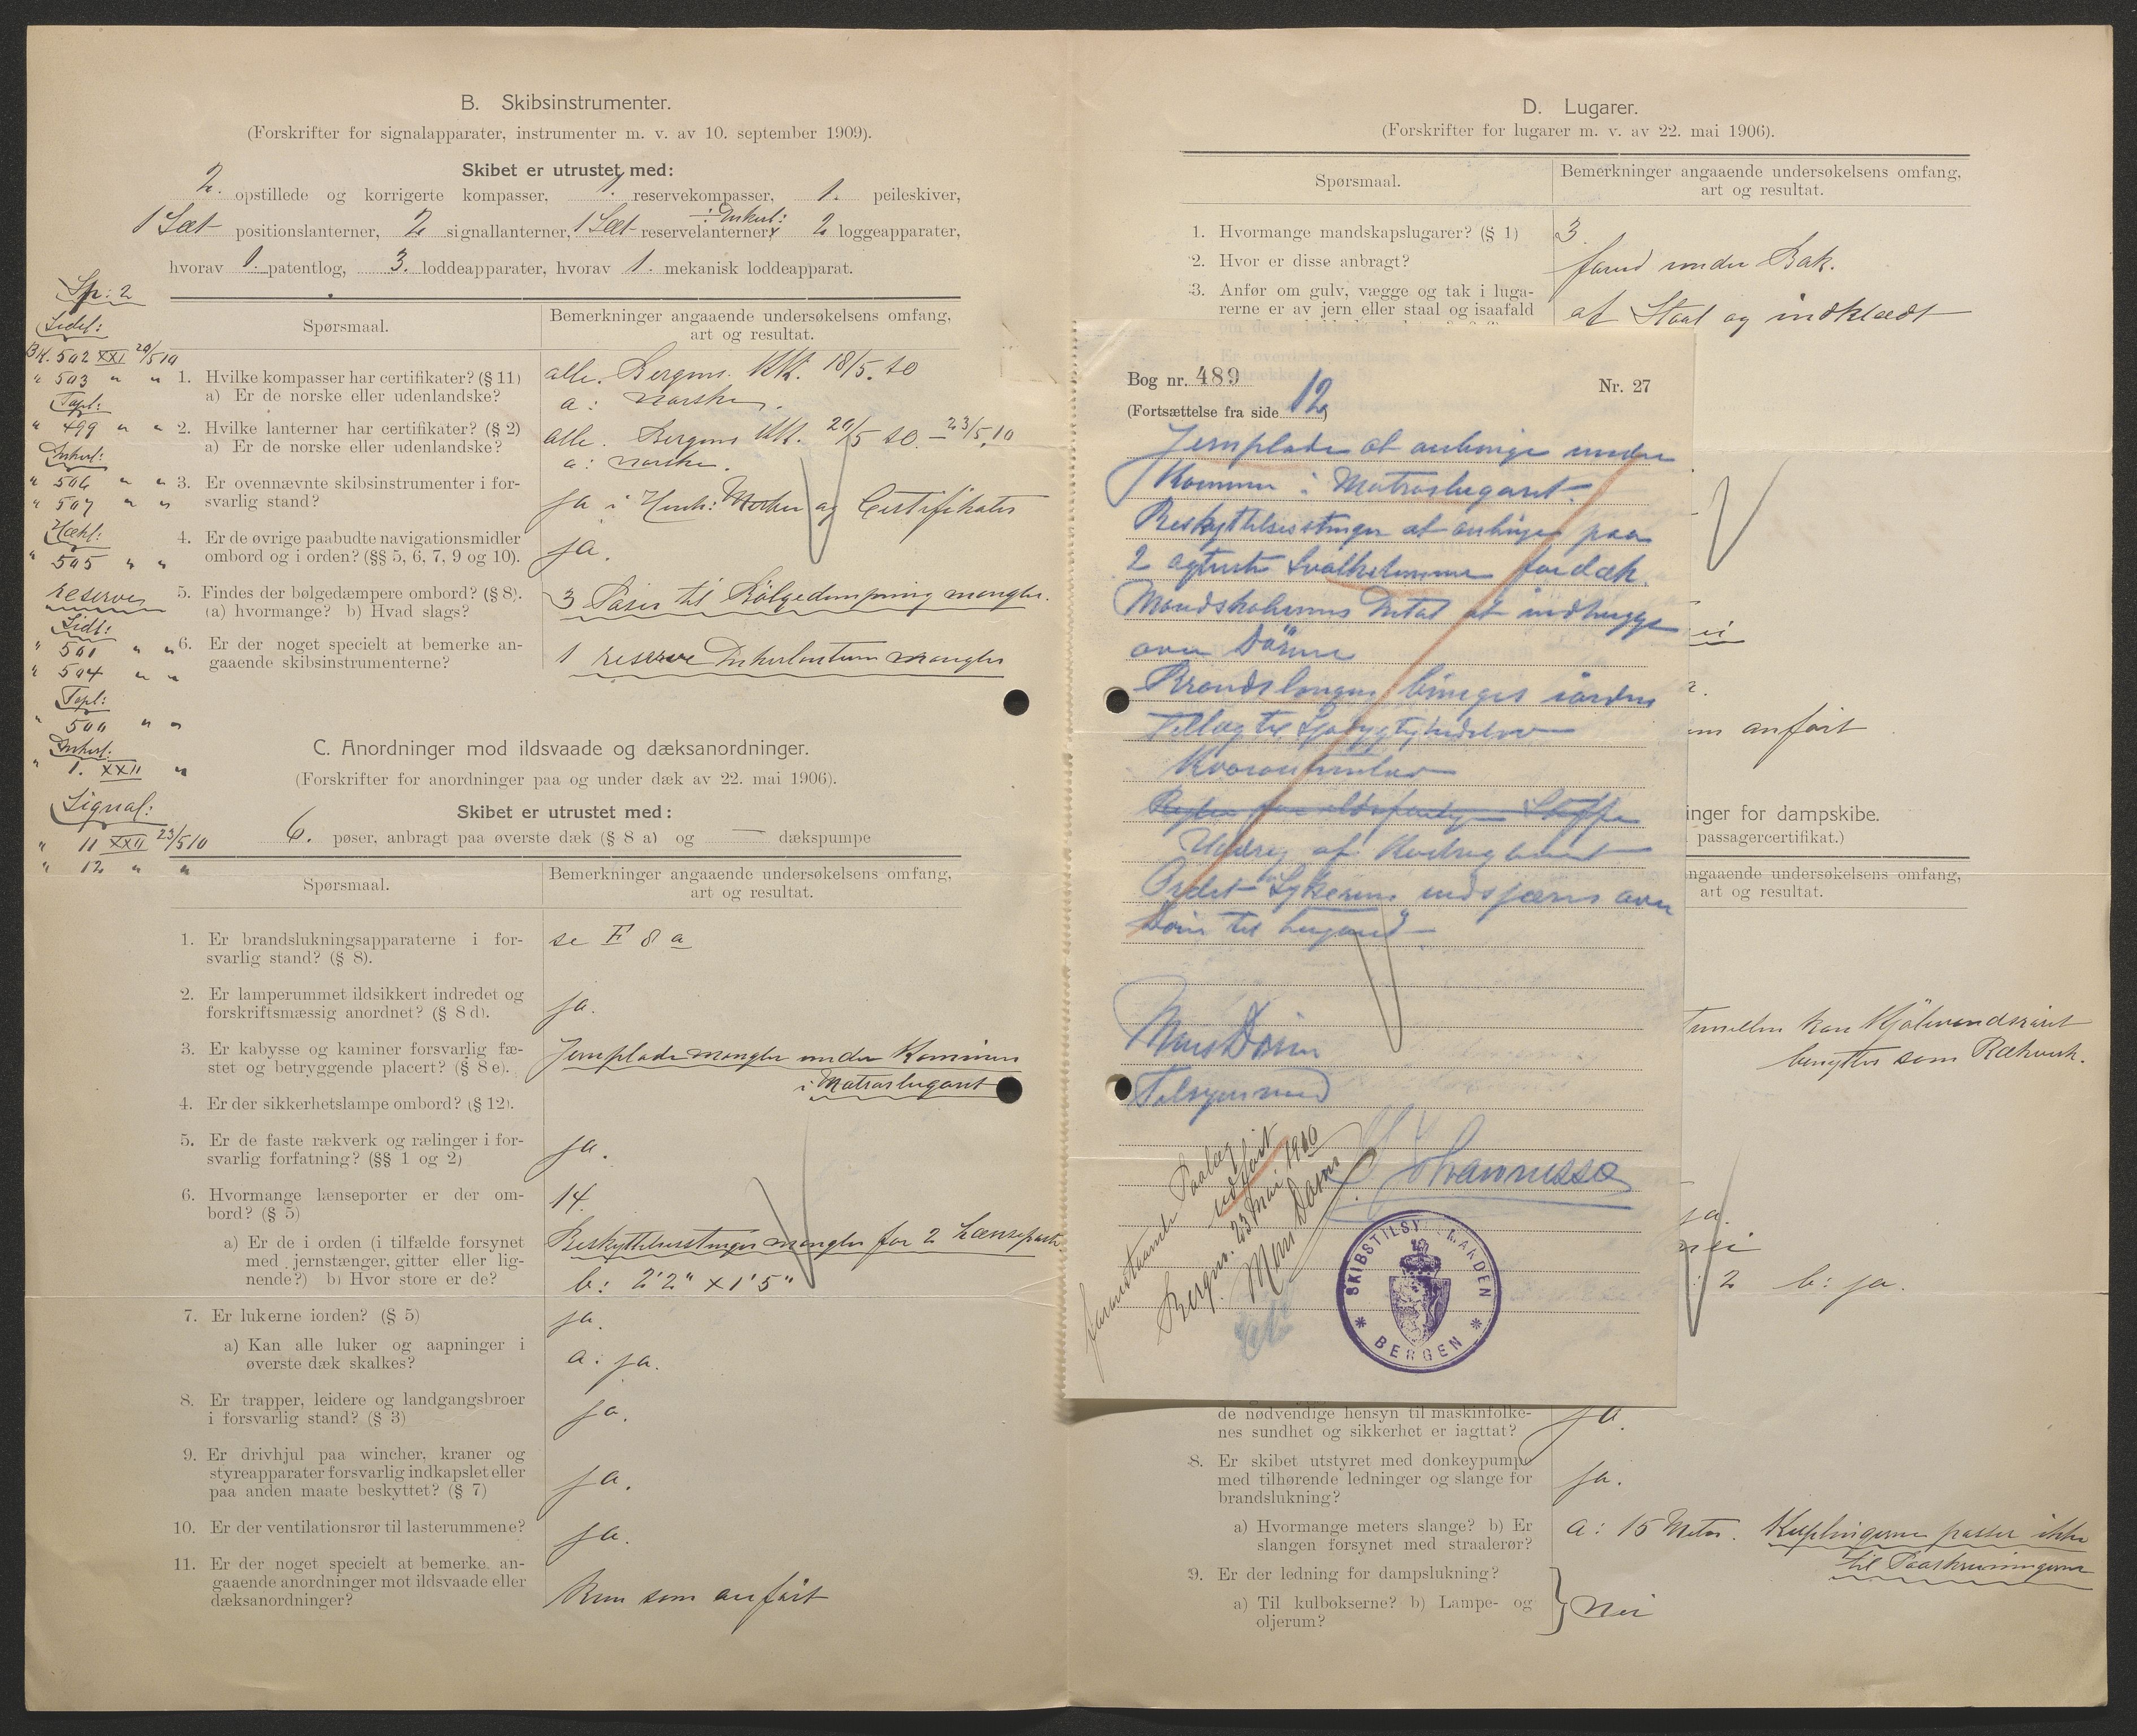 B. Skibsinstrumenter.
(Forskrifter for signalapparater, instrumenter m. v. av 10. september 1909).
Skibet er utrustet med:
2. opstillede og korrigerte kompasser, 1. reservekompasser, 1. peileskiver,
1 Sæt positionslanterner, 2 signallanterner, 1 Sæt reservelanterner, 2 loggeapparater,
hvorav 1. patentlog, 3. loddeapparater, hvorav 1. mekanisk loddeapparat.
Sp: 2
Sidel:
BK. 502 XXI 20/5 10
" 503 " "
Topl:
" 499 " "
Ankerl:
" 506 " "
" 507 " "
Hækl:
" 505 " "
reserve
Sidl:
" 501 " "
" 504 " "
Topl:
" 500 " "
Ankerl:
" 1. XXII "
Signal:
" 11 XXII 23/5 10
" 12 " "
Spørsmaal.
Bemerkninger angaaende undersøkelsens omfang,
art og resultat.
1. Hvilke kompasser har certifikater? (§ 11)
a) Er de norske eller udenlandske?
alle. Bergens KK. 18/5. 10
a: norske.
2. Hvilke lanterner har certifikater? (§ 2)
a) Er de norske eller udenlandske?
alle. Bergens KK. 20/5 10 – 23/5. 10
a: norske.
3. Er ovennævnte skibsinstrumenter i for-
svarlig stand?
ja i Henh: Merker og Certifikater
4. Er de øvrige paabudte navigationsmidler
ombord og i orden? (§§ 5, 6, 7, 9 og 10).
ja.
5. Findes der bølgedæmpere ombord? (§ 8).
(a) hvormange? b) Hvad slags?
3 Poser til Bölgedæmpning mangler.
6. Er der noget specielt at bemerke an-
gaaende skibsinstrumenterne?
1 reserve Ankerlanterne mangler
C. Anordninger mod ildsvaade og dæksanordninger.
(Forskrifter for anordninger paa og under dæk av 22. mai 1906).
Skibet er utrustet med:
6. pøser, anbragt paa øverste dæk (§ 8 a) og — dækspumpe
Spørsmaal.
Bemerkninger angaaende undersøkelsens omfang,
art og resultat.
1. Er brandslukningsapparaterne i for-
svarlig stand? (§ 8).
se F 8 a
2. Er lamperummet ildsikkert indredet og
forskriftsmæssig anordnet? (§ 8 d).
ja.
3. Er kabysse og kaminer forsvarlig fæ-
stet og betryggende placert? (§ 8 e).
Jernplade mangler under Kaminen
i Matroslugaret
4. Er der sikkerhetslampe ombord? (§ 12).
5. Er de faste rækverk og rælinger i for-
svarlig forfatning? (§§ 1 og 2)
ja.
6. Hvormange lænseporter er der om-
bord? (§ 5)
14.
a) Er de i orden (i tilfælde forsynet
med jernstænger, gitter eller lig-
nende?) b) Hvor store er de?
Beskyttelsesstænger mangler for 2 Lænseporte.
b: 2'2" x 1'5"
7. Er lukerne iorden? (§ 5)
ja.
a) Kan alle luker og aapninger i
øverste dæk skalkes?
a: ja.
8. Er trapper, leidere og landgangsbroer
i forsvarlig stand? (§ 3)
ja.
9. Er drivhjul paa wincher, kraner og
styreapparater forsvarlig indkapslet eller
paa anden maate beskyttet? (§ 7)
ja.
10. Er der ventilationsrør til lasterummene?
ja.
11. Er der noget specielt at bemerke an-
gaaende anordninger mot ildsvaade eller
dæksanordninger?
Kun som anfört
D. Lugarer.
(Forskrifter for lugarer m. v. av 22. mai 1906).
Spørsmaal.
Bemerkninger angaaende undersøkelsens omfang,
art og resultat.
1. Hvormange mandskapslugarer? (§ 1)
3.
2. Hvor er disse anbragt?
forud under Bak.
3. Anfør om gulv, vægge og tak i luga-
rerne er av jern eller staal og isaafald
af Staal og indklædt
Bog nr. 489
Nr. 27
(Fortsættelse fra side 12)
Jernplade at anbringe under
Kaminen i Matroslugaret.
Beskyttelsesstænger at anbringe paa
2 agterste fordæk.
Mandskabernes Antal at indhugge
over Dörene
Brandslangen bringes iorden
Tillæg til Sjødygtighedslov
Udtog af
Ordet Lykeren udsjæres over
Dören til Lugaret
Mons Dosen
Tilsynsmand
Johannessen
foranstaaende Paalæg
udfört
Bergen. 23 Mai 1910
Mons Dosen
SKIBSTILSYNSMANDEN
* BERGEN *
anfört
inger for dampskibe.
passagercertifikat.)
ngaaende undersøkelsens omfang,
art og resultat.
Tunellen kan Kjölevandsröret
benyttes som Rækverk.
ja.
nei
: 2 b: ja.
de nødvendige hensyn til maskinfolke-
nes sundhet og sikkerhet er iagttat?
ja.
8. Er skibet utstyret med donkeypumpe
med tilhørende ledninger og slange for
brandslukning?
ja.
a) Hvormange meters slange? b) Er
slangen forsynet med straalerør?
a: 15 Meter. Kuplingerne passer ikke
til Paaskruningerne
9. Er der ledning for dampslukning?
a) Til kulbokserne? b) Lampe- og
oljerum?
Nei